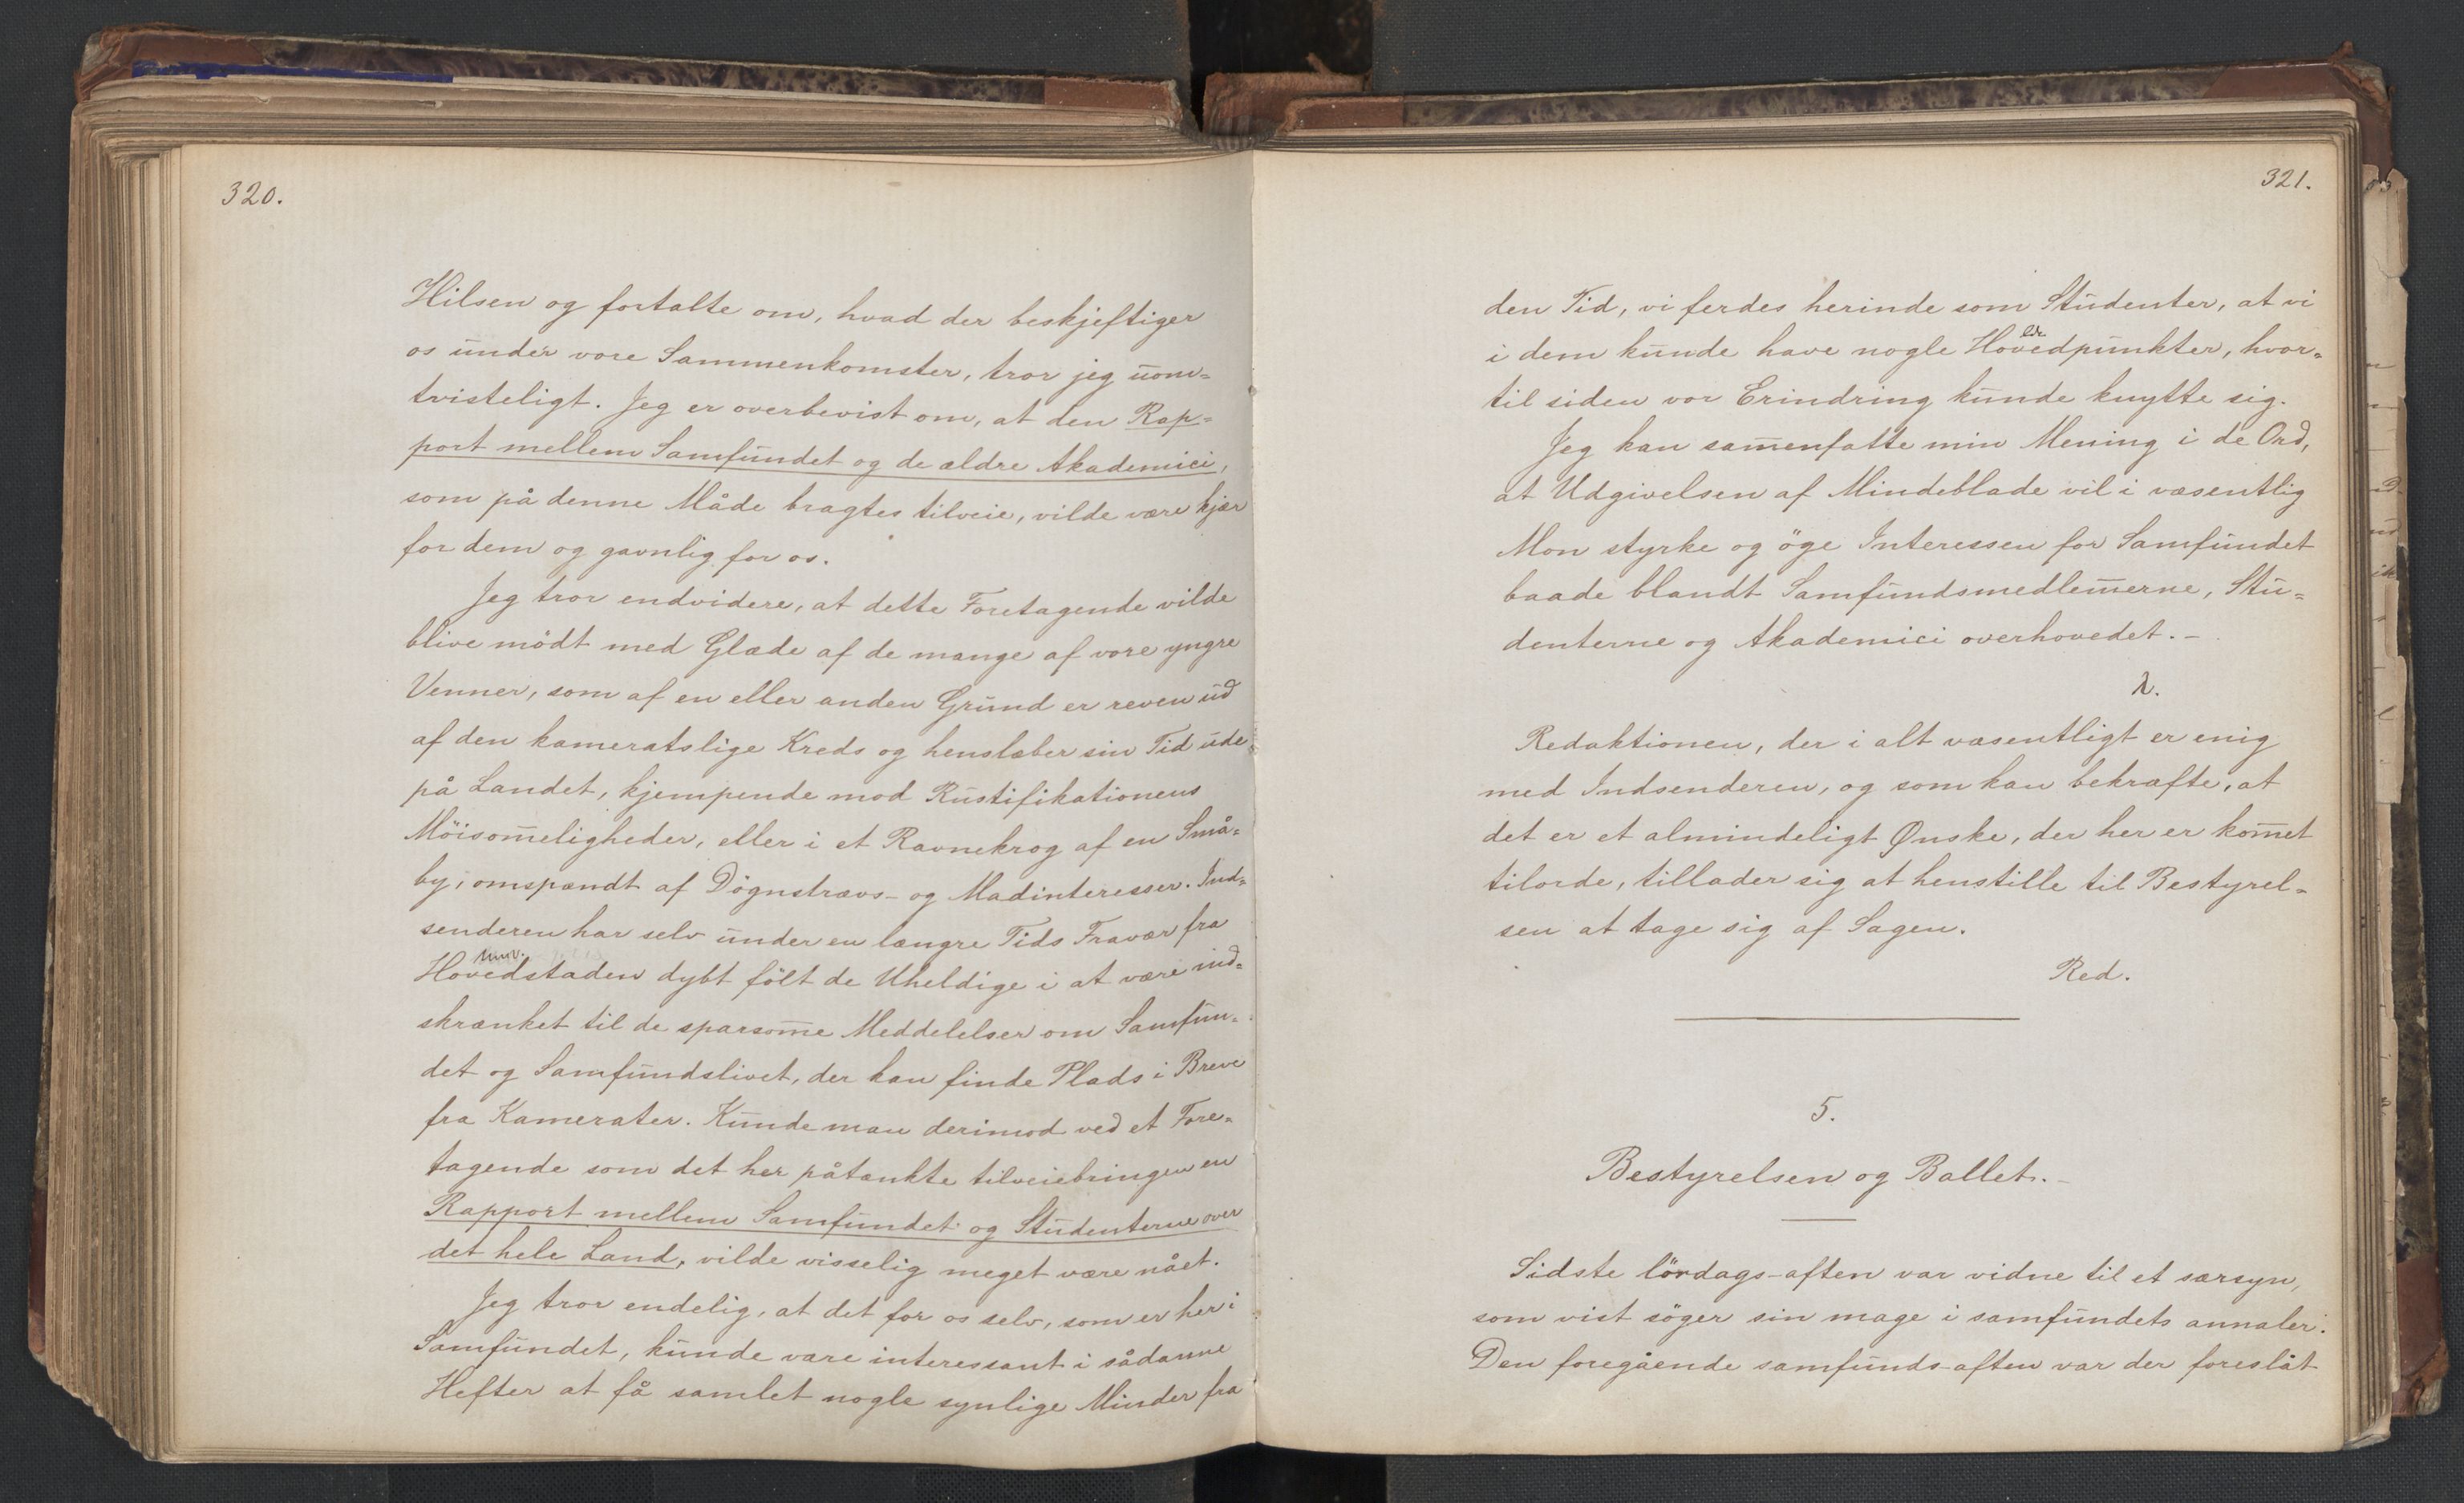 320.
Hilsen og fortalte om, hvad der beskjeftiger
os under vore Sammenkomster, tror jeg uom=
tvisteligt. Jeg er overbevist om, at den Rap=
port mellem Samfundet og de ældre Akademici,
som på denne Måde bragtes tilveie, vilde være kjær
for dem og gavnlig for os.
Jeg tror endvidere, at dette Foretagende vilde
blive mödt med Glæde af de mange af vore yngre
Venner, som af en eller anden Grund er reven ud
af den kameratslige Kreds og henslæber sin Tid ude
på Landet, kjempende mod Rustifikationens
Möisom̅eligheder, eller i et Ravnekrog af en Små=
by, omspændt af Dögnstrævs- og Madinteresser. Ind=
senderen har selv under en længre Tids Fravær fra
Hovedstaden dybt fölt de Uheldige i at være ind=
skrænket til de sparsom̅e Meddelelser om Samfun=
det og Samfundslivet, der kan finde Plads i Breve
fra Kamerater. Kunde man derimod ved et Fore=
tagende som det her påtænkte tilveiebringe en
Rapport mellem Samfundet og Studenterne over
det hele Land, vilde visselig meget være nået.
Jeg tror endelig, at det for os selv, som er her i
Samfundet, kunde være interessant i sådanne
Hefter at få samlet nogle synlige Minder fra
321.
den Tid, vi ferdes herinde som Studenter, at vi
i dem kunde have nogle Hovedpunkter, hvor=
til siden vor Erindring kunde knytte sig.
Jeg kan sam̅enfatte min Mening i de Ord,
at Udgivelsen af Mindeblade vil i væsentlig
Mon styrke og öge Interessen for Samfundet
baade blandt Samfundsmedlem̅erne, Stu=
denterne og Akademici overhovedet. –
λ.
Redaktionen, der i alt væsentligt er enig
med Indsenderen, og som kan bekræfte, at
det er et almindeligt Ønske, der her er kom̅et
tilorde, tillader sig at henstille til Bestyrel=
sen at tage sig af Sagen.
Red.
5.
Bestyrelsen og Ballet. –
Sidste lördags-aften var vidne til et særsyn,
som vist söger sin mage i samfundets annaler.
Den foregående samfunds-aften var der foreslåt